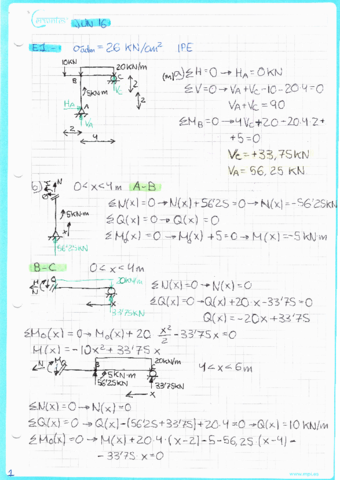 JUN 16
E1.- σadm = 26 KN/cm² IPE
10KN
20KN/m
B
C
5KN·m
Vc
2
2
HA
A
VA
2
4
a) ΣH=0 → HA=0KN
ΣV=0 → VA+Vc-10-20·4=0
VA+Vc=90
ΣMB=0 → 4Vc+20-20·4·2+
+5=0
Vc=+33,75KN
VA=56,25 KN
b)
N
5KN·m
x
56'25KN
0<x<4m A-B
ΣN(x)=0 → N(x)+56'25=0 → N(x)=-56'25KN
ΣQ(x)=0 → Q(x)=0
ΣMo(x)=0 → Mo(x)+5=0 → M(x)=-5KN·m
B-C 0<x<4m
20KN/m
N
x
33'75KN
ΣN(x)=0 → N(x)=0
ΣQ(x)=0 → Q(x)+20·x-33'75=0
Q(x)=-20x+33'75
ΣMo(x)=0 → Mo(x)+20·x²/2-33'75x=0
M(x)=-10x²+33'75x
20KN/m
5KN·m
56'25KN
x
4<x<6m
ΣN(x)=0 → N(x)=0
ΣQ(x)=0 → Q(x)-(56'25+33'75)+20·4=0 → Q(x)=10KN/m
ΣMo(x)=0 → M(x)+20·4·(x-2)-5-56,25·(x-4)-
-33'75·x=0
1